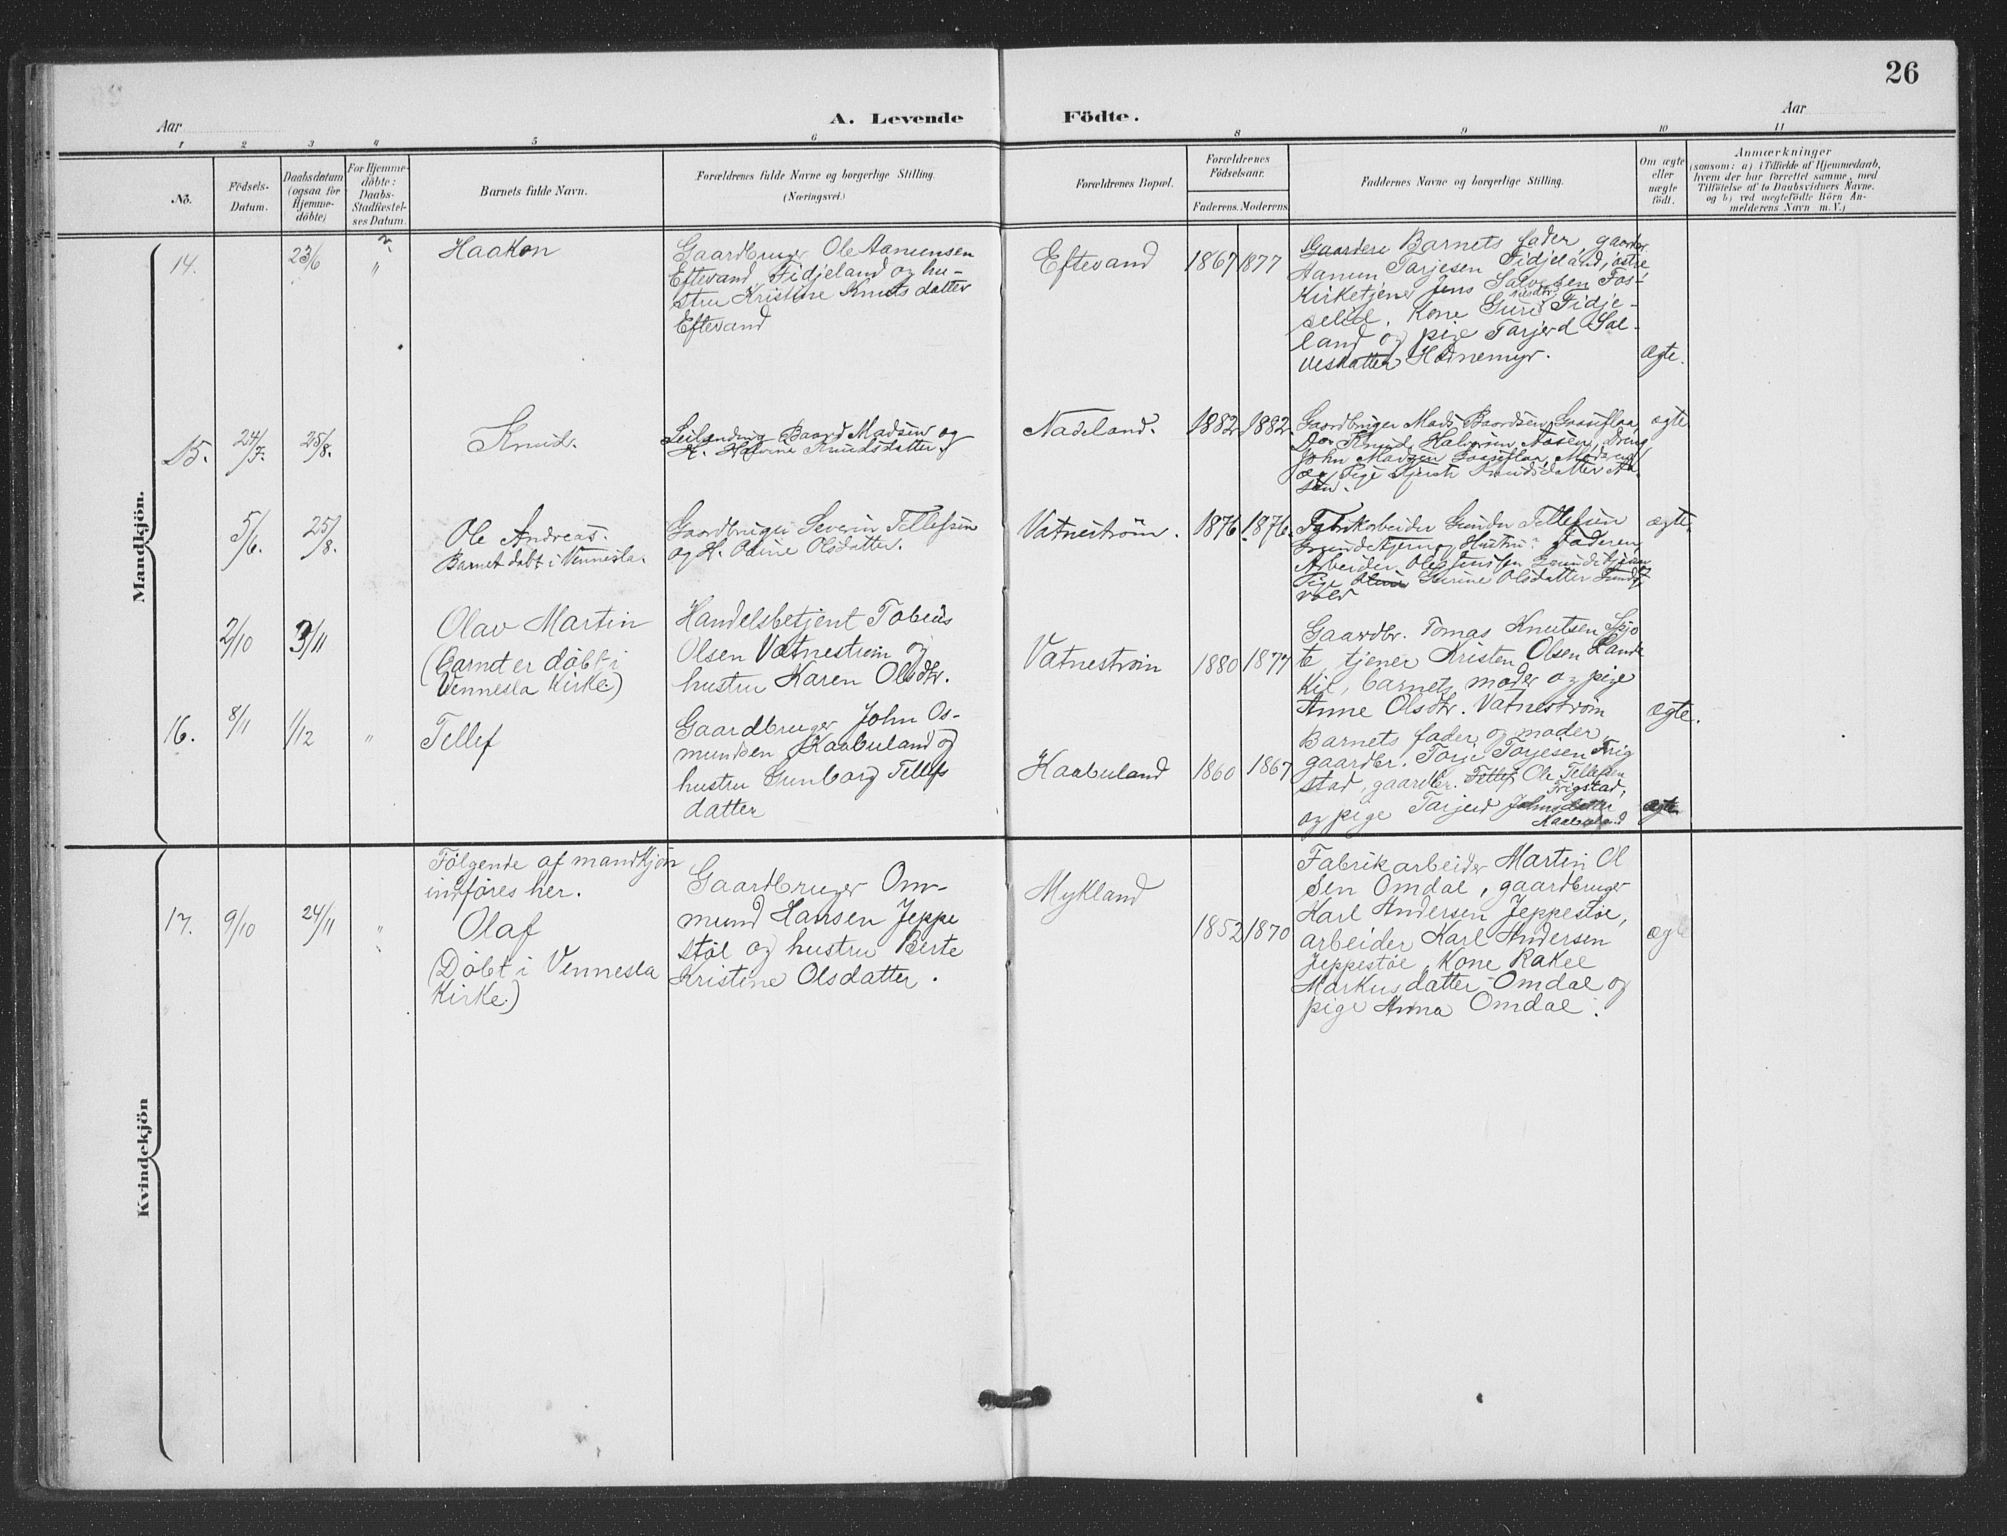 26
Aar
A. Levende Födte.
Aar
1 2 3 4 5 6 8 9 10 11
No.
Födsels-
Datum.
Daabsdatum
(ogsaa for
Hjemme-
döbte)
For Hjemme-
döbte:
Daabs-
Stadfæstel-
ses Datum.
Barnets fulde Navn.
Forældrenes fulde Navne og borgerlige Stilling.
(Næringsvei.)
Forældrenes Bopæl.
Forældrenes
Födselsaar.
Faderens. Moderens.
Faddernes Navne og borgerlige Stilling.
Om ægte
eller
uægte
födt.
Anmærkninger
(saasom: a) i Tilfælde af Hjemmedaab,
hvem der har forrettet samme, med
Tilföielse af to Daabsvidners Navne.
og b) ved uægtefödte Börn An-
melderens Navn m. V.)
Mandkjön.
14.
23/6
"
Haakon
Gaardbruger Ole Aanunsen
Eftevand, Fidjeland og hu-
stru Kristine Knuts datter
Eftevand
Eftevand
1867 1877
Barnets fader, gaardbr.
Aanun Tarjesen Fidjeland,
Kirketjener Jens Salvesen Fos-
selid. Kone Guri Fidje-
land og pige Tarjerd Sal-
vesdatter Hodnemyr.
ægte.
15.
24/7.
25/8.
Knud.
Leilending Baard Madsen og
H. Halvine Knudsdatter
Nadeland.
1882 1882.
Gaardbruger Mads Baardsen
Knud Halvorsen Aasen, Dreng
John Madsen
og Pige Knudsdatter Aa-
sen.
ægte
5/6.
25/8.
Ole Andreas.
Barnet döbt i Vennesla.
Gaardbruger Severin Tellefsen
og H. Odine Olsdatter.
Vatneström.
1876 1876.
Fabrikarbeider Gunder Tellefsen
og Hustru. Faderen
Arbeider Ole Jensen
Pige Gurine Olsdatter
vold
ægte
2/10
3/11
Olav Martin
(Barnet er döbt i
Vennesla Kirke.)
Handelsbetjent Tobias
Olsen Vatneström og
hustru Karen Olsdtr.
Vatneström
1880 1877
Gaardbr. Tomas Knutsen
tjener Kristen Olsen Lande
Kil, barnets moder og pige
Anne Olsdtr. Vatneström
ægte.
16.
8/11
1/12
"
Tellef
Gaardbruger John Os-
mundsen Kaabuland og
hustru Gunborg Tellefs
datter
Kaabuland
1860 1867
Barnets fader og moder,
gaardbr. Tarje Tarjesen Frig
stad, gaardbr. Tellef Ole Tellefsen
Frigstad,
og pige Tarjerd Johnsdatter
Kaabuland
ægte
Kvindekjön
Fölgende af mandkjön
indföres her.
17.
9/10
24/11
"
Olaf
(Döbt i Vennesla
Kirke.)
Gaardbruger Om-
mund Hansen Jeppe
stöl og hustru Berte
Kristine Olsdatter.
Mykland
1852 1870
Fabrikarbeider Martin Ol
sen Omdal, gaardbruger
Karl Andersen Jeppestöl,
arbeider Karl Andersen
Jeppestöl, Kone Rakel
Markusdatter Omdal og
pige Anna Omdal.
ægte